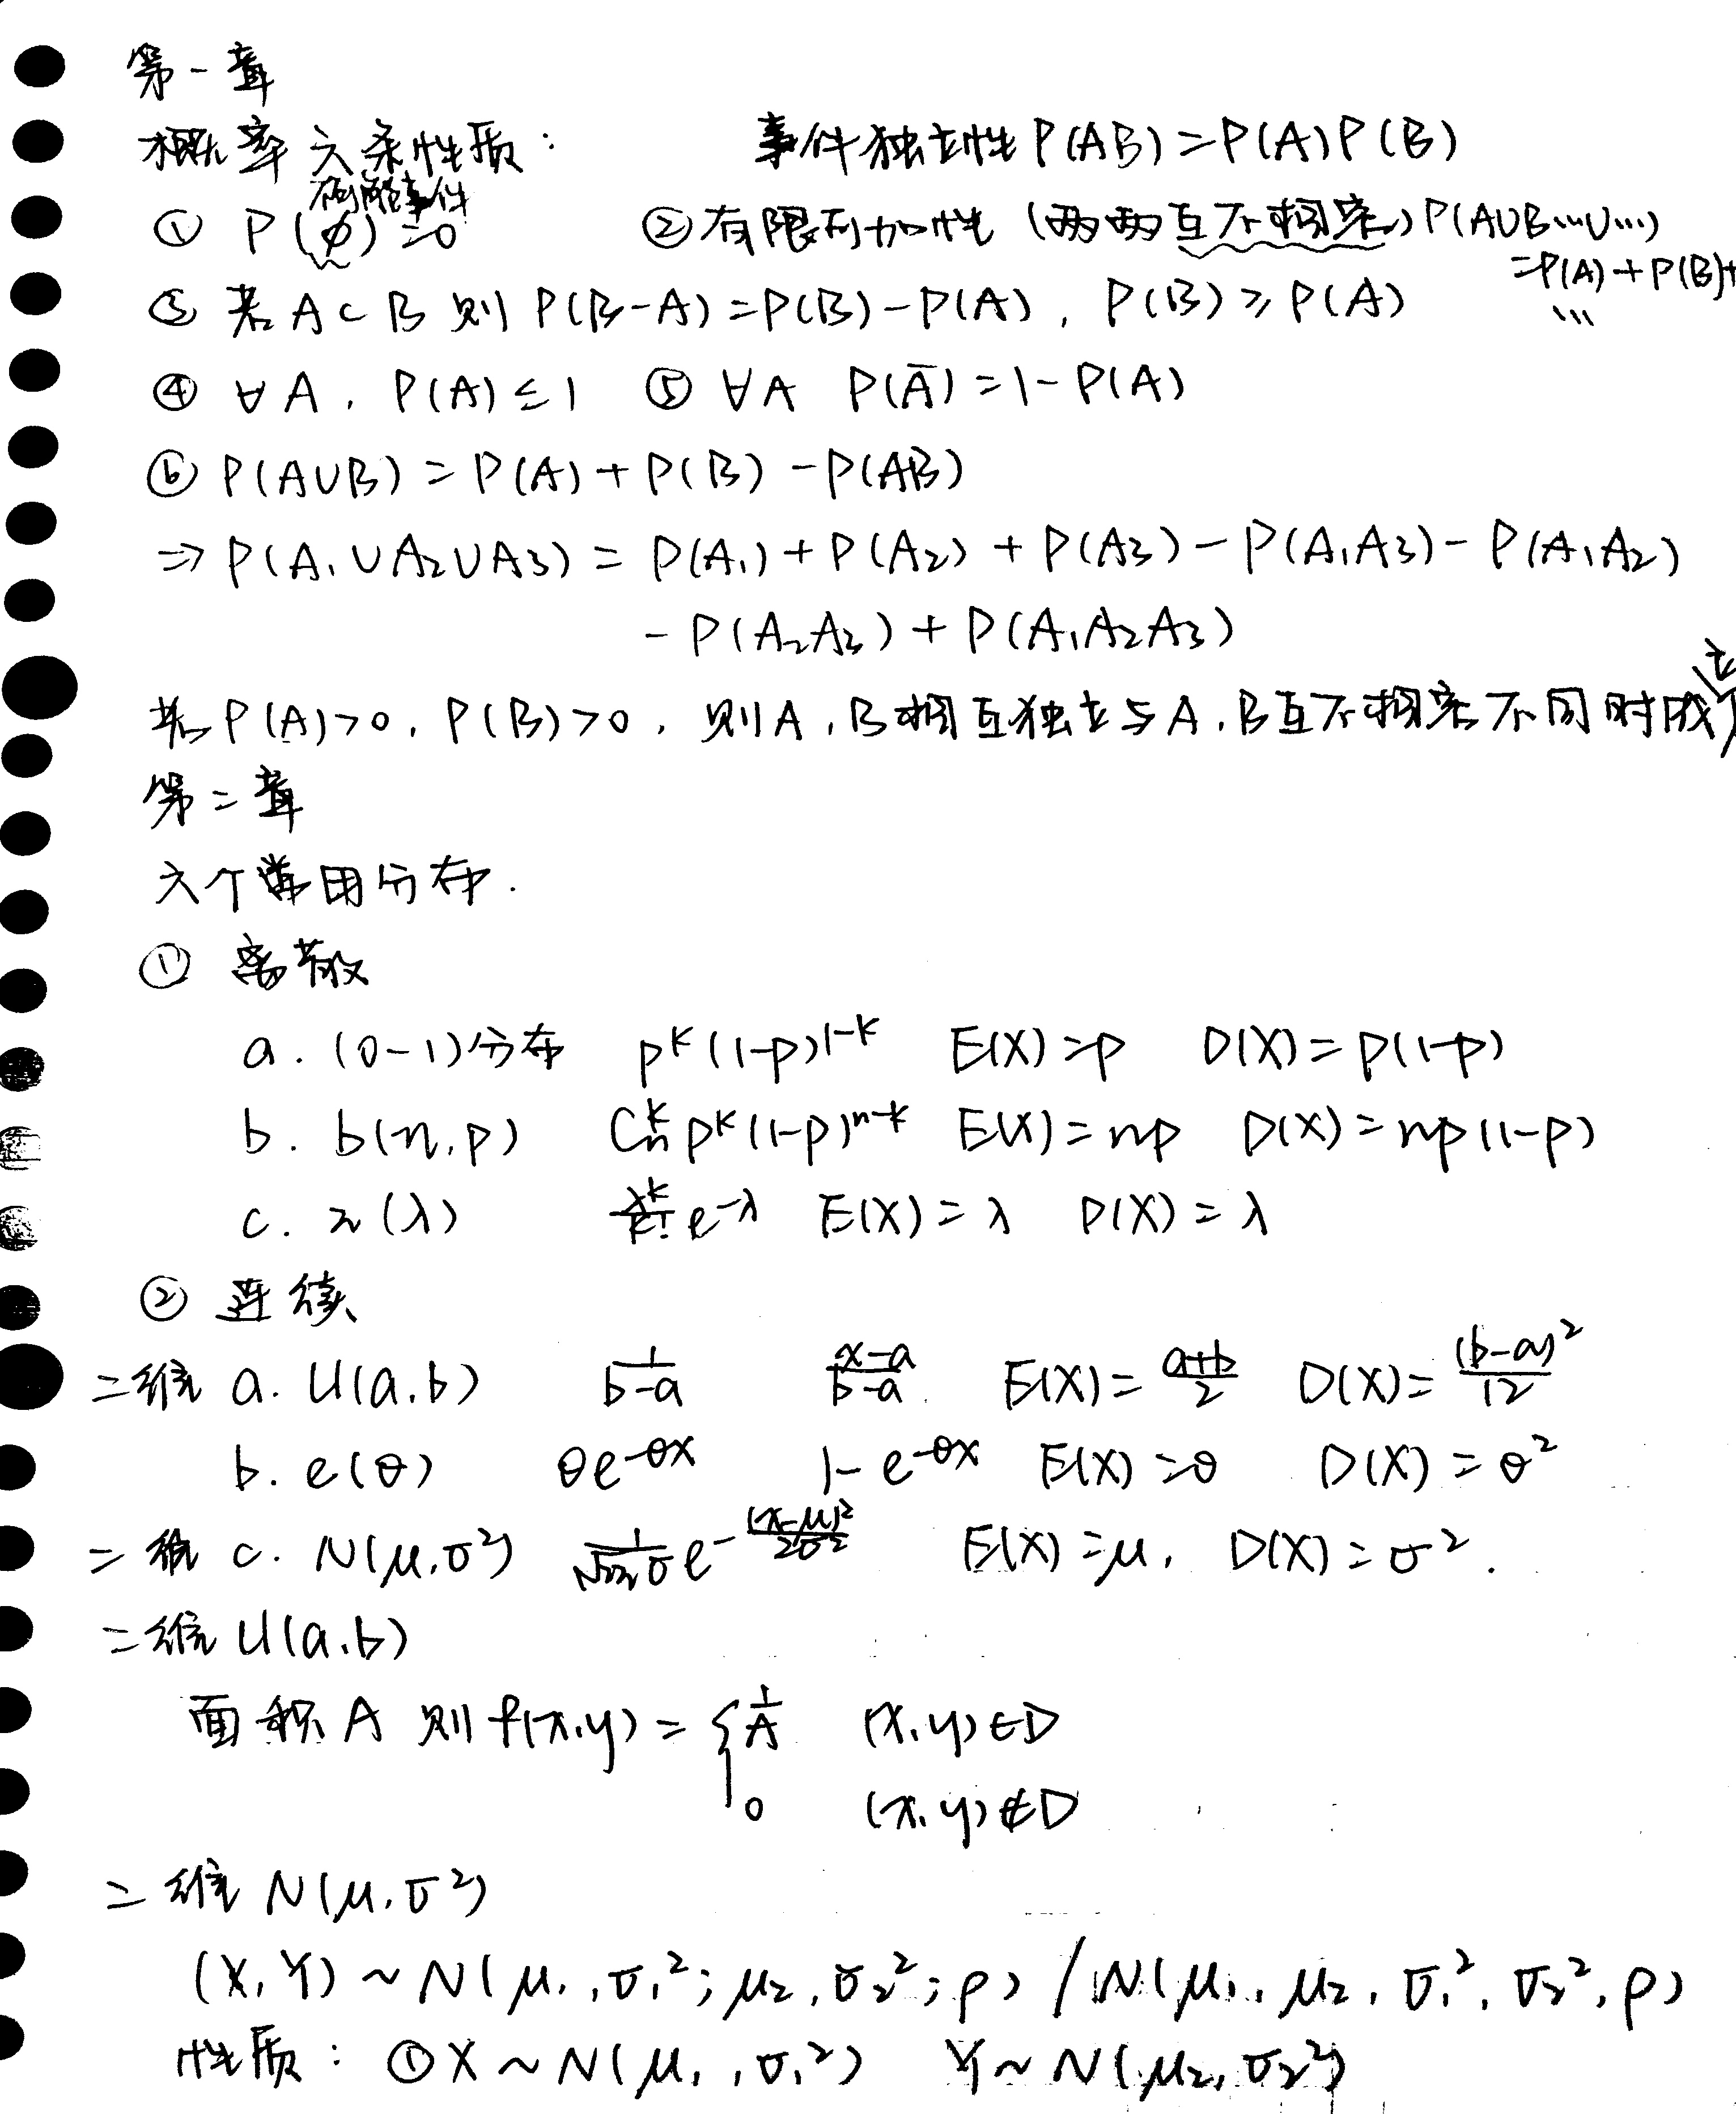 第一章
概率六条性质： 事件独立性 P(AB)=P(A)P(B)
不可能事件
① P(∅)=0 ②有限可加性 (两两互不相容) P(A∪B…∪…)
=P(A)+P(B)+
…
③ 若 A⊂B 则 P(B-A)=P(B)-P(A), P(B)≥P(A)
④ ∀A, P(A)≤1 ⑤ ∀A P(Ā)=1-P(A)
⑥ P(A∪B)=P(A)+P(B)-P(AB)
⇒ P(A₁∪A₂∪A₃)=P(A₁)+P(A₂)+P(A₃)-P(A₁A₃)-P(A₁A₂)
-P(A₂A₃)+P(A₁A₂A₃)
若 P(A)>0, P(B)>0, 则 A,B 相互独立与 A,B 互不相容不同时成立
第二章
六个常用分布.
① 离散
a. (0-1)分布 p^k(1-p)^{1-k} E(X)=p D(X)=p(1-p)
b. b(n,p) C_n^k p^k(1-p)^{n-k} E(X)=np D(X)=np(1-p)
c. π(λ) λ^k/k! e^{-λ} E(X)=λ D(X)=λ
② 连续
二维 a. U(a,b) 1/(b-a) (x-a)/(b-a) E(X)=(a+b)/2 D(X)=(b-a)²/12
b. e(θ) θe^{-θx} 1-e^{-θx} E(X)=θ D(X)=θ²
二维 c. N(μ,σ²) 1/(√2π σ) e^{-(x-μ)²/2σ²} E(X)=μ, D(X)=σ².
二维 U(a,b)
面积 A 则 f(x,y)={ 1/A (x,y)∈D
0 (x,y)∉D
二维 N(μ,σ²)
(X,Y)~N(μ₁,σ₁²;μ₂,σ₂²;ρ) / N(μ₁,μ₂,σ₁²,σ₂²,ρ)
性质：①X~N(μ₁,σ₁²) Y~N(μ₂,σ₂²)